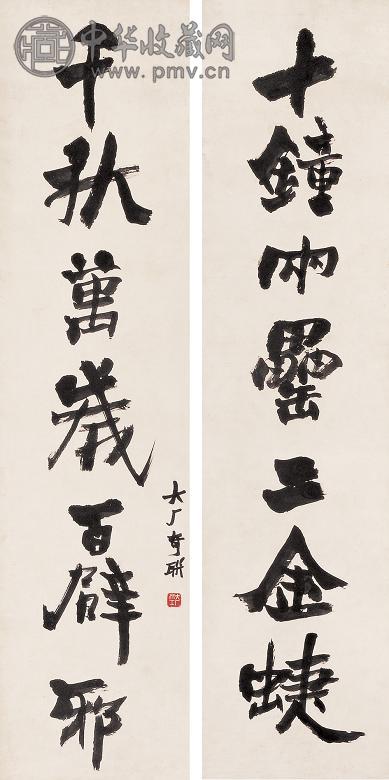 中华收藏网
www.pmv.cn
十鐘兩罍二金蜨
千秋萬歲百辟邪
大厂